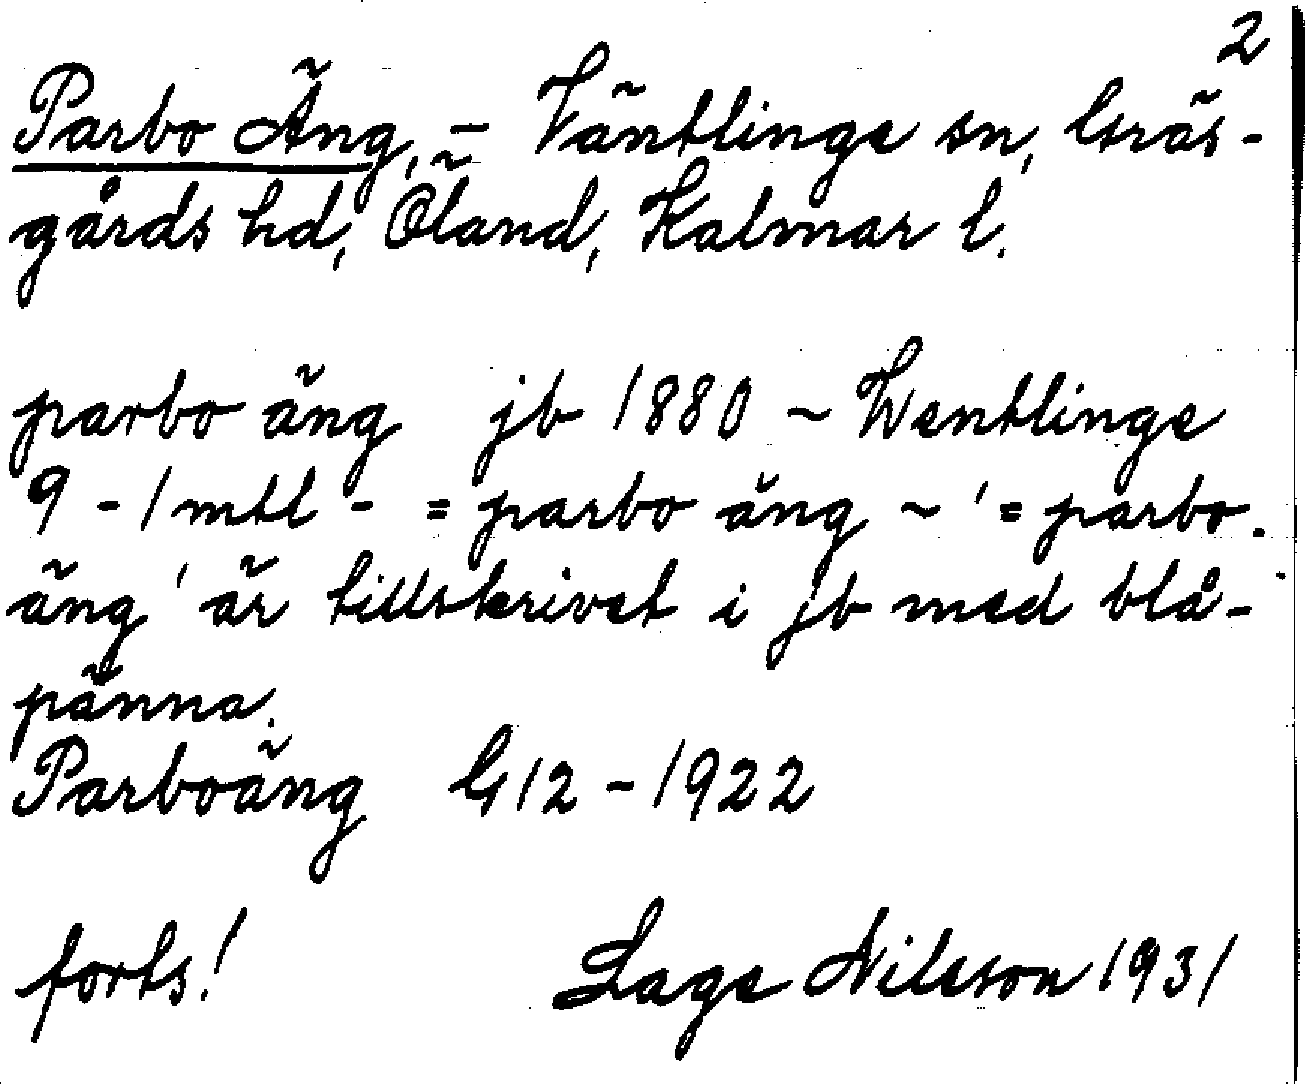 2
Parbo Äng, - Väntlinge sn, Gräs-
gårds hd, Öland, Kalmar l.
parbo äng jb 1880 ~ Wentlinge
9 - 1 mtl - = parbo äng ~ ' = parbo.
äng ' är tillskrivet i jb med blå-
pänna.
Parboäng G12 - 1922
forts! Lage Nilsson 1931